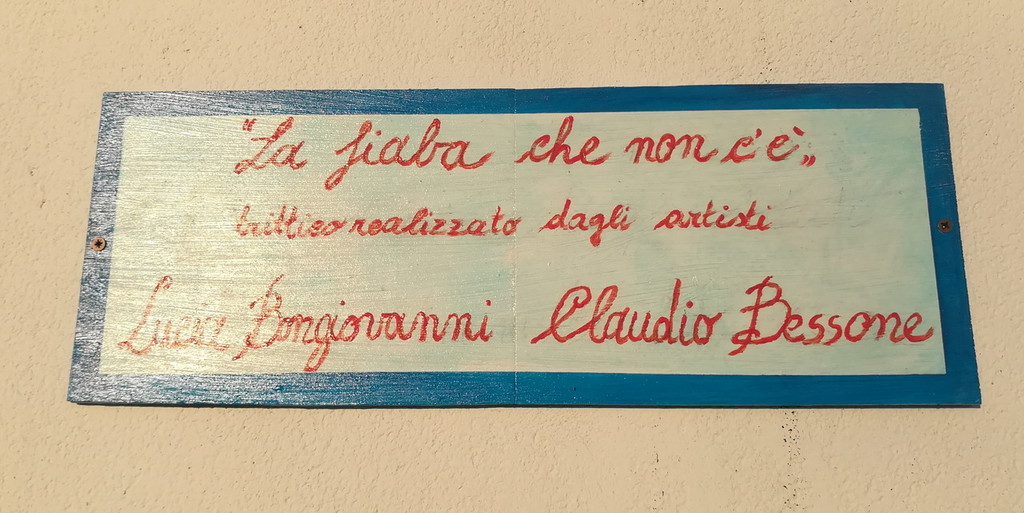 "La fiaba che non c'è„
trittico realizzato dagli artisti
Lucia Bongiovanni Claudio Bessone